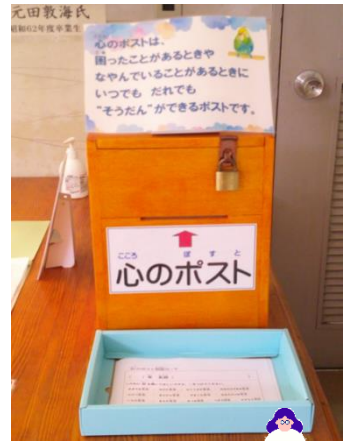 元田敦海氏
昭和62年度卒業生
心のポストは、
困ったことがあるときや
なやんでいることがあるときに
いつでも だれでも
“そうだん”ができるポストです。
こころ ぽすと
心のポスト